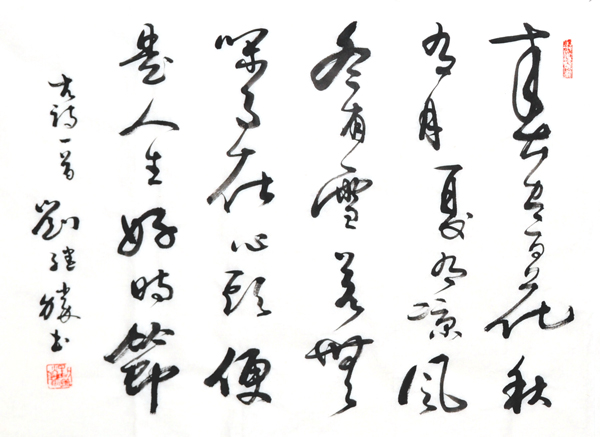 春有百花秋
有月夏有凉風
冬有雪若無
閑事挂心頭便
是人生好時節
古詩一首 劉繼勝書